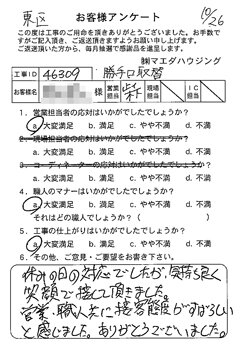 東区
10/26
お客様アンケート
この度は工事のご用命を頂きありがとうございました。お手数で
すがご記入頂き、ご返送頂きますようお願い申し上げます。
ご返送頂いた方から、毎月抽選で感謝品を進呈します。
㈱マエダハウジング
工事ID 46309 勝手口取替
お客様名 様 営業担当 柴 工事担当 I C担当
1．営業担当者の応対はいかがでしたでしょうか？
a. 大変満足 b. 満足 c. やや不満 d. 不満
2．現場担当者の応対はいかがでしたでしょうか？
a. 大変満足 b. 満足 c. やや不満 d. 不満
3．コーディネーターの応対はいかがでしたでしょうか？
a. 大変満足 b. 満足 c. やや不満 d. 不満
4．職人のマナーはいかがでしたでしょうか？
a. 大変満足 b. 満足 c. やや不満 d. 不満
それはどの職人でしょうか？（ ）
5．工事の仕上がりはいかがでしたでしょうか？
a. 大変満足 b. 満足 c. やや不満 d. 不満
6．その他、ご意見・ご要望をお書き下さい。
休みの日の対応でしたが、気持ち良く
笑顔で接して頂きました。
営業・職人共に接客態度がすばらしい
と感じました。ありがとうございました。